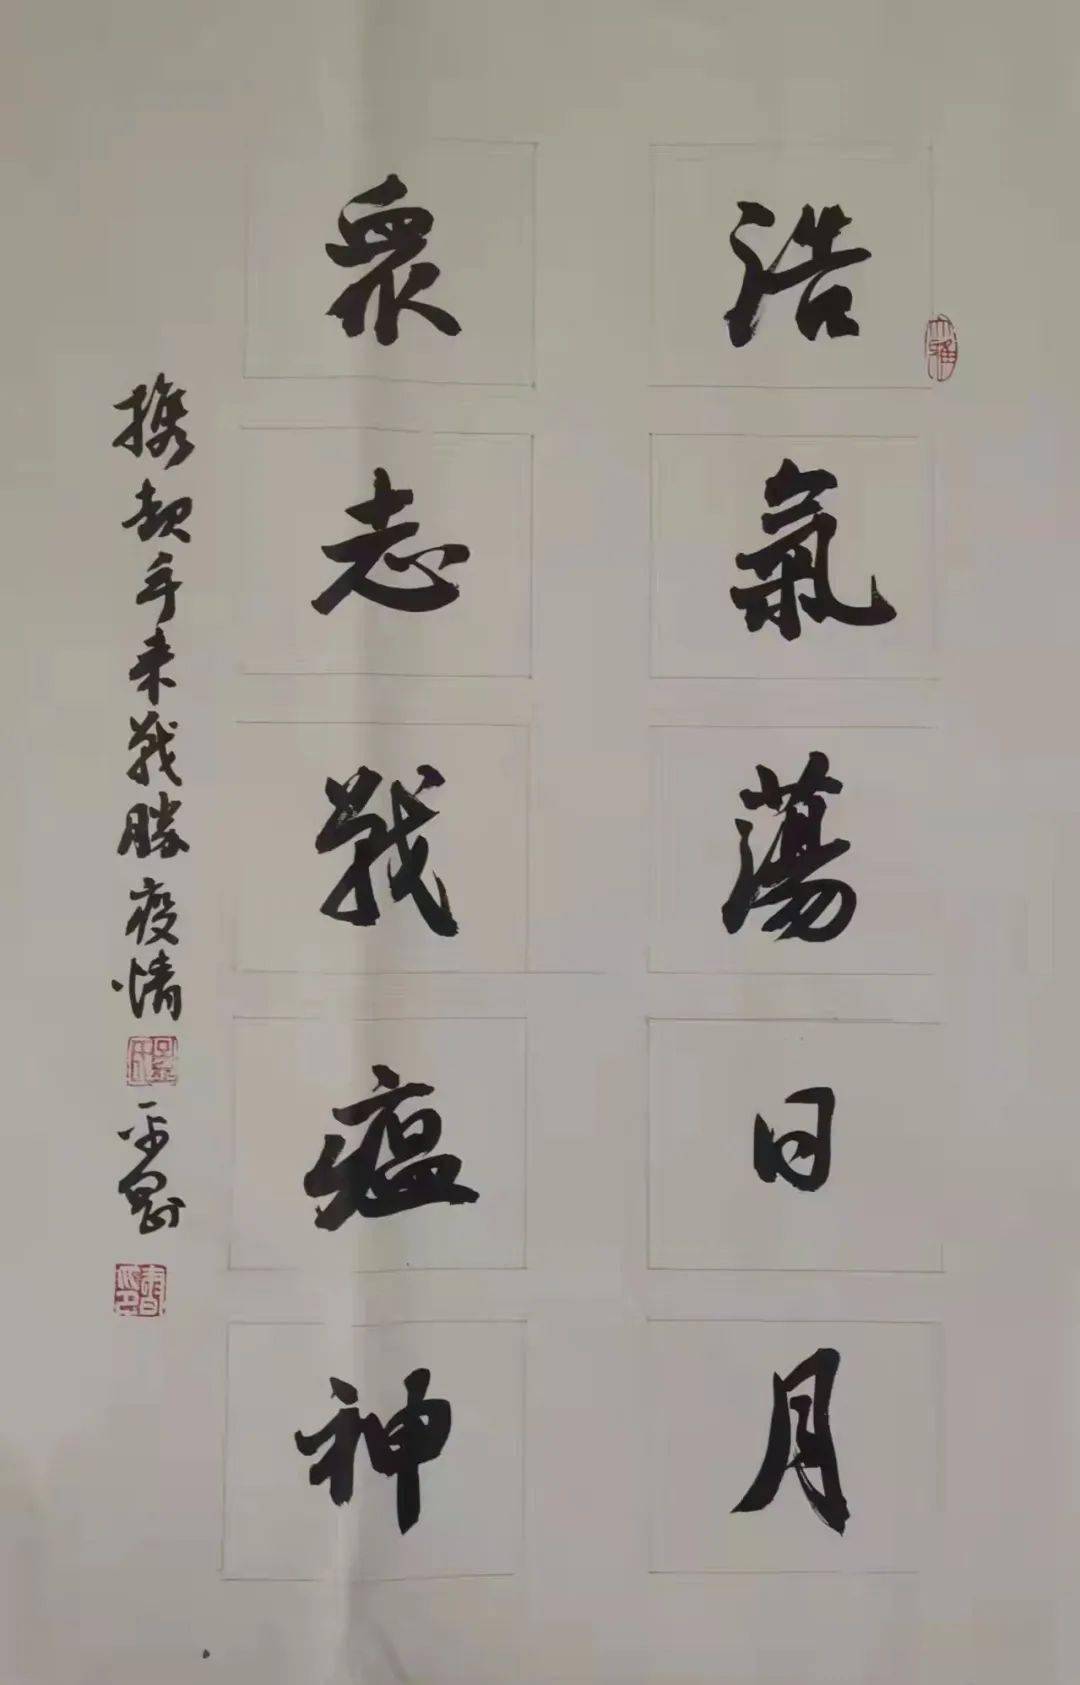 浩氣蕩日月
眾志戰瘟神
携起手来戰勝疫情